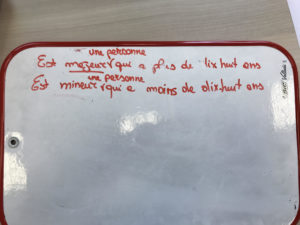 une personne
Est majeur qui a plus de dix huit ans
une personne
Est mineur qui a moins de dix-huit ans